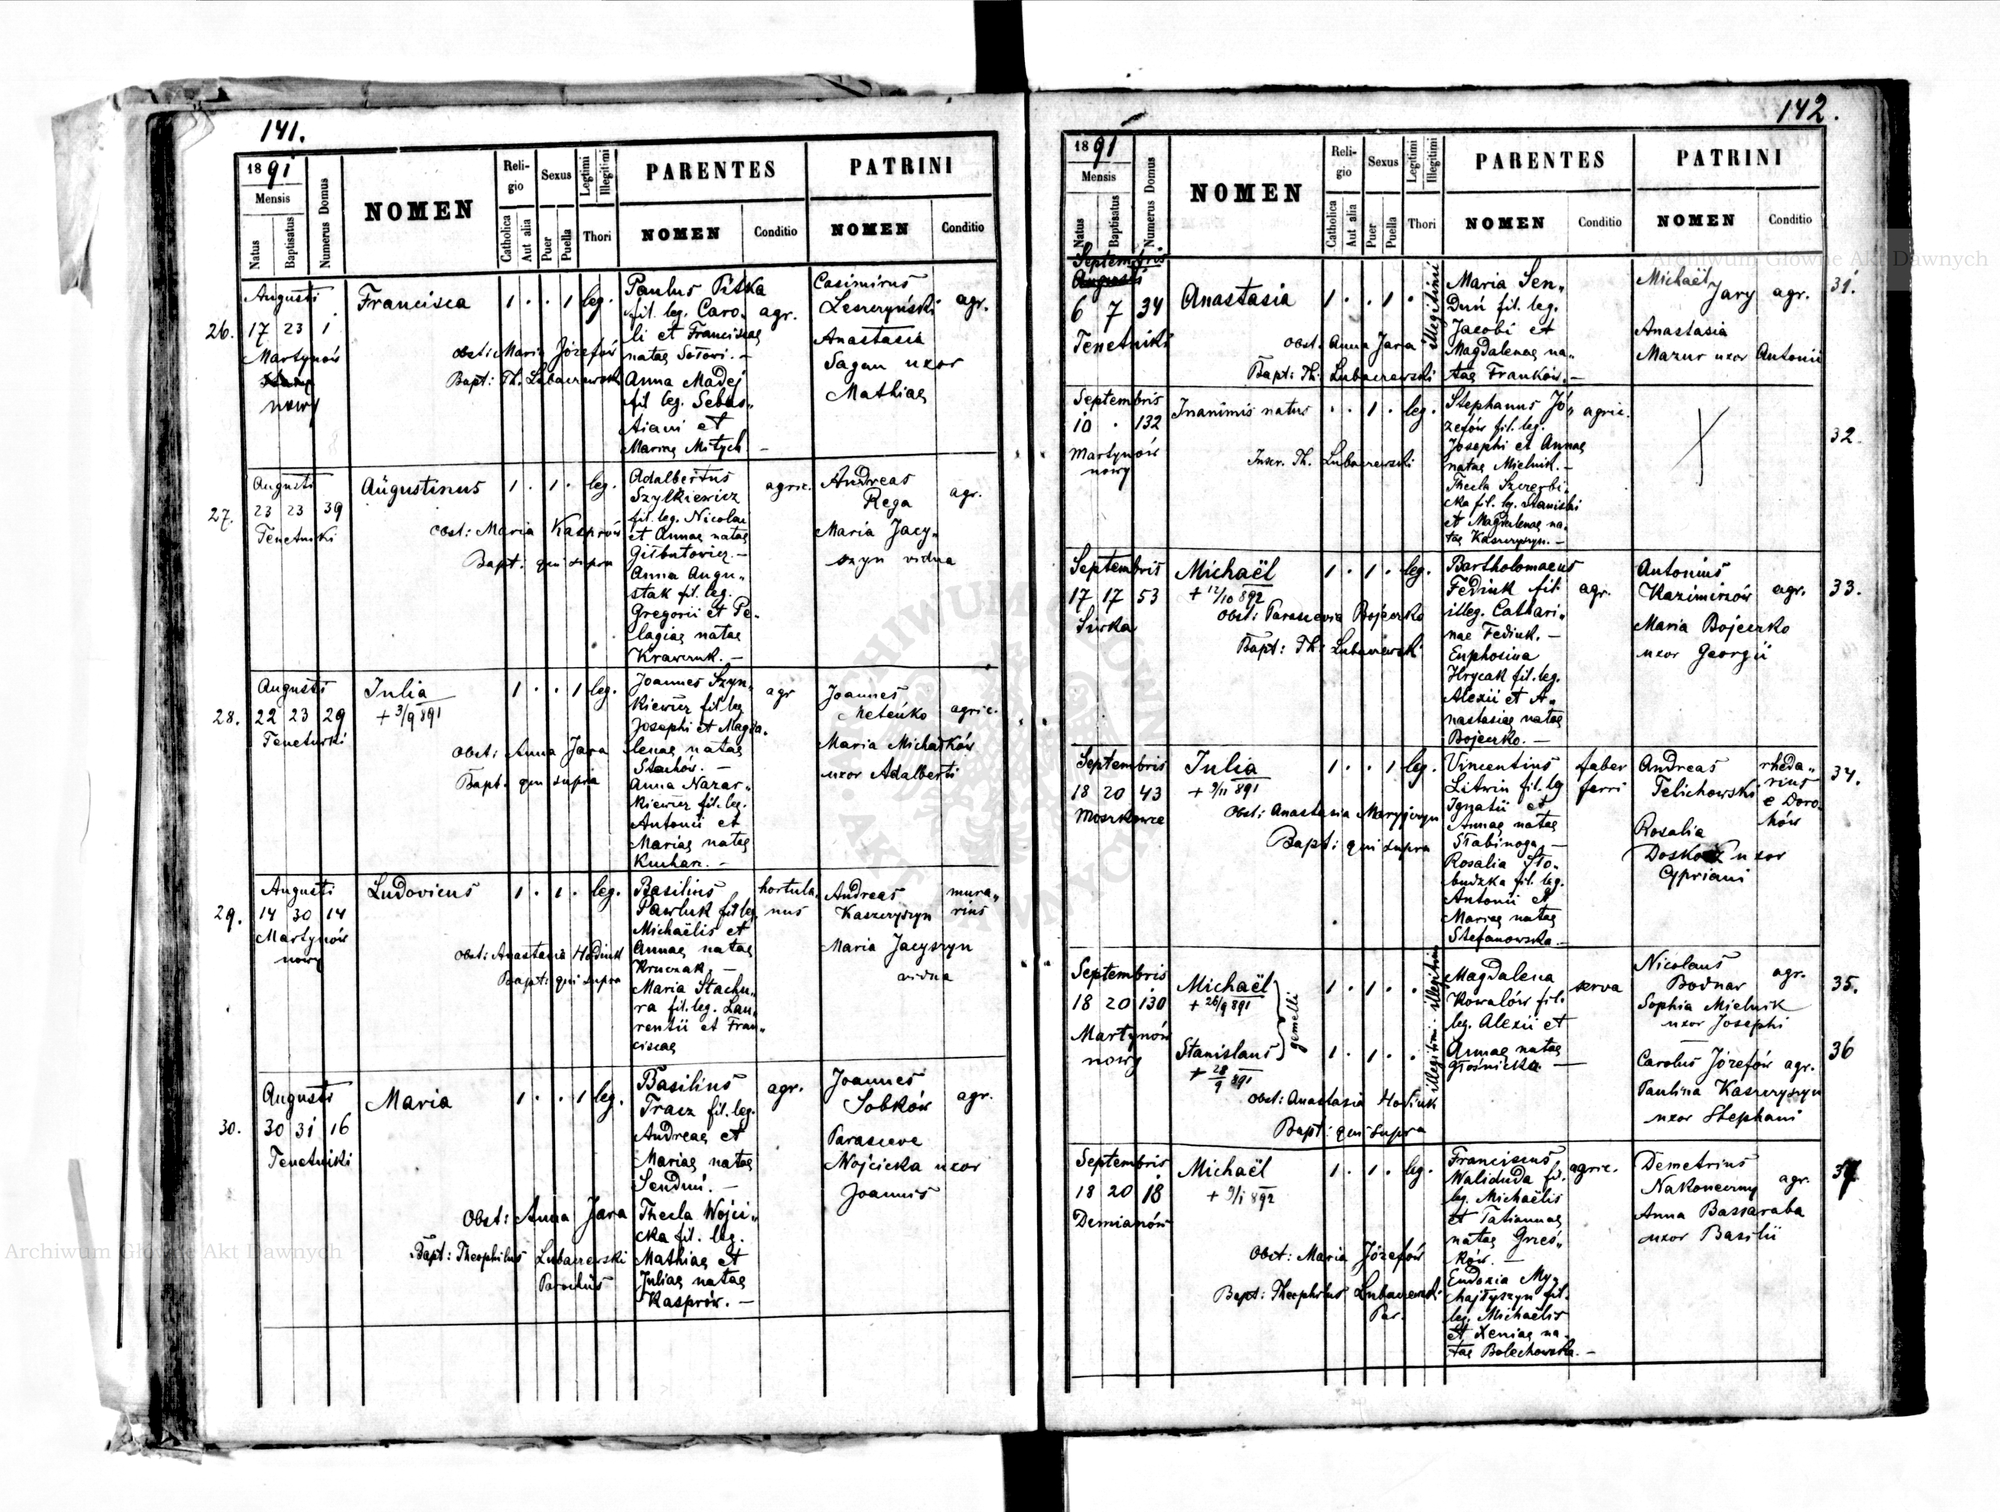 141.
1891
Mensis
Natus
Baptisatus
Numerus Domus
NOMEN
Religio
Catholica
Aut alia
Sexus
Puer
Puella
Legitimi
Illegitimi
Thori
PARENTES
NOMEN
Conditio
PATRINI
NOMEN
Conditio
26.
Augusti
17 23 1
Martynów
nowy
Francisca
1 . . 1 leg.
Obst: Maria Józefów
Bapt: Th. Lubaczewski
Paulus Pitka
fil. leg. Caro-
li et Franciscae
natae Sołowi. —
Anna Madej
fil leg. Sebas-
tiani et
Mariae Mitych. —
agr.
Casimirus
Leszczyński
Anastasia
Sagan uxor
Mathiae
agr.
27.
Augusti
23 23 39
Tenetniki
Augustinus
1 . 1 . leg.
Obst: Maria Kasprów
Bapt: qui supra
Adalbertus
Szylkiewicz
fil. leg. Nicolai
et Annae natae
Gisbutowicz. —
Anna Augu-
stak fil. leg.
Gregorii et Pe-
lagiae natae
Krawczuk. —
agric.
Andreas
Rega
Maria Jacy-
szyn vidua
agr.
28.
Augusti
22 23 29
Tenetniki
Julia
+ 3/9 891
1 . . 1 leg.
Obst: Anna Jara
Bapt. qui supra
Joannes Szyn-
kiewicz fil. leg
Josephi et Magda-
lenae natae
Stachów. —
Anna Nazar-
kiewicz fil. leg.
Antonii et
Mariae natae
Kuchar. —
agr
Joannes
Meteńko
Maria Michałków
uxor Adalberti
agric.
29.
Augusti
14 30 14
Martynów
nowy
Ludovicus
1 . 1 . leg.
Obst: Anastasia Hodiuk
Bapt: qui supra
Basilius
Pawluk fil leg.
Michaëlis et
Annae natae
Kruczak —
Maria Stachu-
ra fil. leg. Lau-
rentii et Fran-
ciscae
hortula-
nus
Andreas
Kaszczyszyn
Maria Jacyszyn
vidua
mura-
rius
30.
Augusti
30 31 16
Tenetniki
Maria
1 . . 1 leg.
Obst: Anna Jara
Bapt: Theophilus Lubaczewski
Parochus
Basilius
Tracz fil. leg.
Andreae et
Mariae natae
Senduń. —
Thecla Wójci-
cka fil. leg.
Mathiae et
Juliae natae
Kasprów. —
agr.
Joannes
Sobków
Parasceve
Wojcicka uxor
Joannis
agr.
142.
1891
Mensis
Natus
Baptisatus
Numerus Domus
NOMEN
Religio
Catholica
Aut alia
Sexus
Puer
Puella
Legitimi
Illegitimi
Thori
PARENTES
NOMEN
Conditio
PATRINI
NOMEN
Conditio
Septembris
Augusti
6 7 34
Tenetniki
Anastasia
1 . . 1 .
illegitimi
Obst. Anna Jara
Bapt: Th. Lubaczewski
Maria Sen-
duń fil. leg.
Jacobi et
Magdalenae na-
tae Franków. —
Michaël
Jary agr.
Anastasia
Mazur uxor Antonii
31.
Septembris
10 . 132
Martynów
nowy
Inanimis natus
. . 1 . leg.
Inscr. Th. Lubaczewski
Stephanus Jó-
zefów fil. leg.
Josephi et Annae
natae Mielnik. —
Thecla Szczerbi-
cka fil. leg. Stanislai
et Magdalenae na-
tae Kaszczyszyn. —
agric.
32.
Septembris
17 17 53
Siwka
Michaël
+ 12/10 892
1 . 1 . leg.
Obst: Parascevia Bojeczko
Bapt: Th: Lubaczewski
Bartholomaeus
Fediuk fil.
illeg. Cathari-
nae Fediuk. —
Euphosina
Hrycak fil. leg.
Alexii et A-
nastasiae natae
Bojeczko. —
agr.
Antonius
Kazimirów
Maria Bojeczko
uxor Georgii
agr.
33.
Septembris
18 20 43
Moszkowce
Julia
+ 9/11 891
1 . . 1 leg.
Obst: Anastasia Maryjczyn
Bapt: qui supra
Vincentius
Litwin fil. leg
Ignatii et
Annae natae
Słabinoga —
Rosalia Sło-
budzka fil. leg.
Antonii et
Mariae natae
Stefanowska. —
faber
ferri
Andreas
Telichowski
Rosalia
uxor
Cypriani
rheda-
rius
e Doro-
hów
34.
Septembris
18 20 130
Martynów
nowy
Michaël
+ 26/9 891
Stanislaus
+ 28/9 891
gemelli
1 . 1 . .
1 . 1 . .
illegitimi illegitimi
Obst: Anastasia Hodiuk
Bapt: qui supra
Magdalena
Kowalów fil.
leg. Alexii et
Annae natae
Głośnicka. —
serva
Nicolaus
Bodnar
Sophia Mielnik
uxor Josephi
agr.
Carolus Józefów agr.
Paulina Kaszczyszyn
uxor Stephani
35.
36
Septembris
18 20 18
Demianów
Michaël
+ 9/1 892
1 . 1 . leg.
Obst: Maria Józefów
Bapt: Theophilus Lubaczewski
Par.
Franciscus
Waliduda fil.
leg. Michaëlis
et Tatiannae
natae Grześ-
ków. —
Eudoxia My-
hajłyszyn fil.
leg. Michaëlis
et Xeniae na-
tae Bolechowska. —
agric.
Demetrius
Nakoneczny
Anna Bassaraba
uxor Basilii
agr.
37
Archiwum Główne Akt Dawnych
Archiwum Główne Akt Dawnych
ARCHIWUM GŁÓWNE AKT DAWNYCH